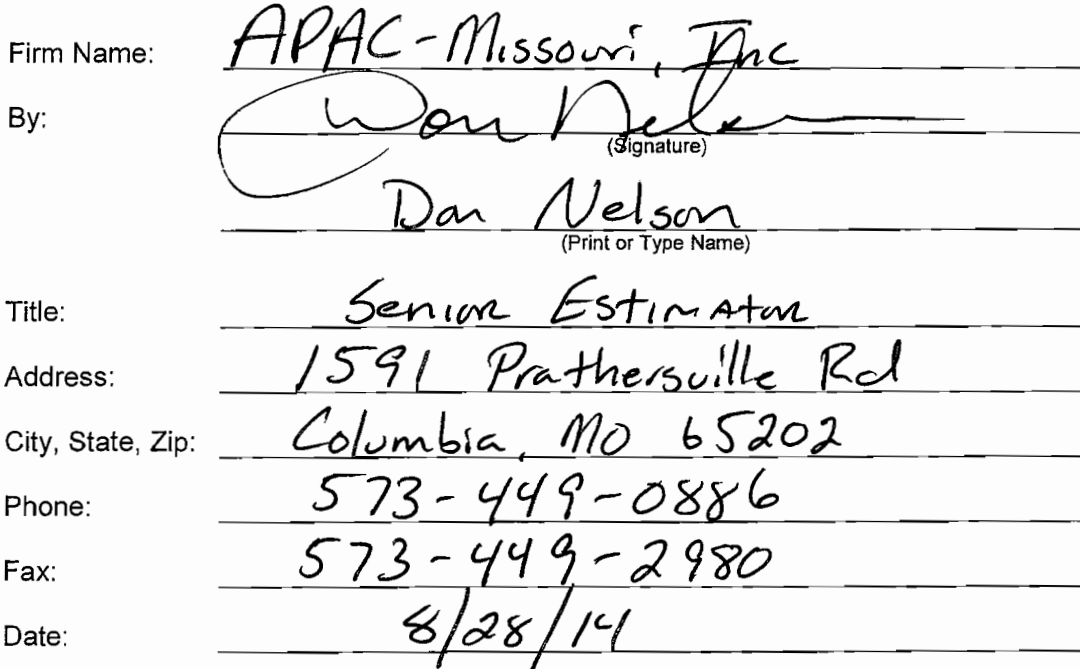 Firm Name: APAC-Missouri, Inc
By: Don Nelson
(Signature)
Don Nelson
(Print or Type Name)
Title: Senior Estimator
Address: 1591 Prathersville Rd
City, State, Zip: Columbia, MO 65202
Phone: 573-449-0886
Fax: 573-449-2980
Date: 8/28/14